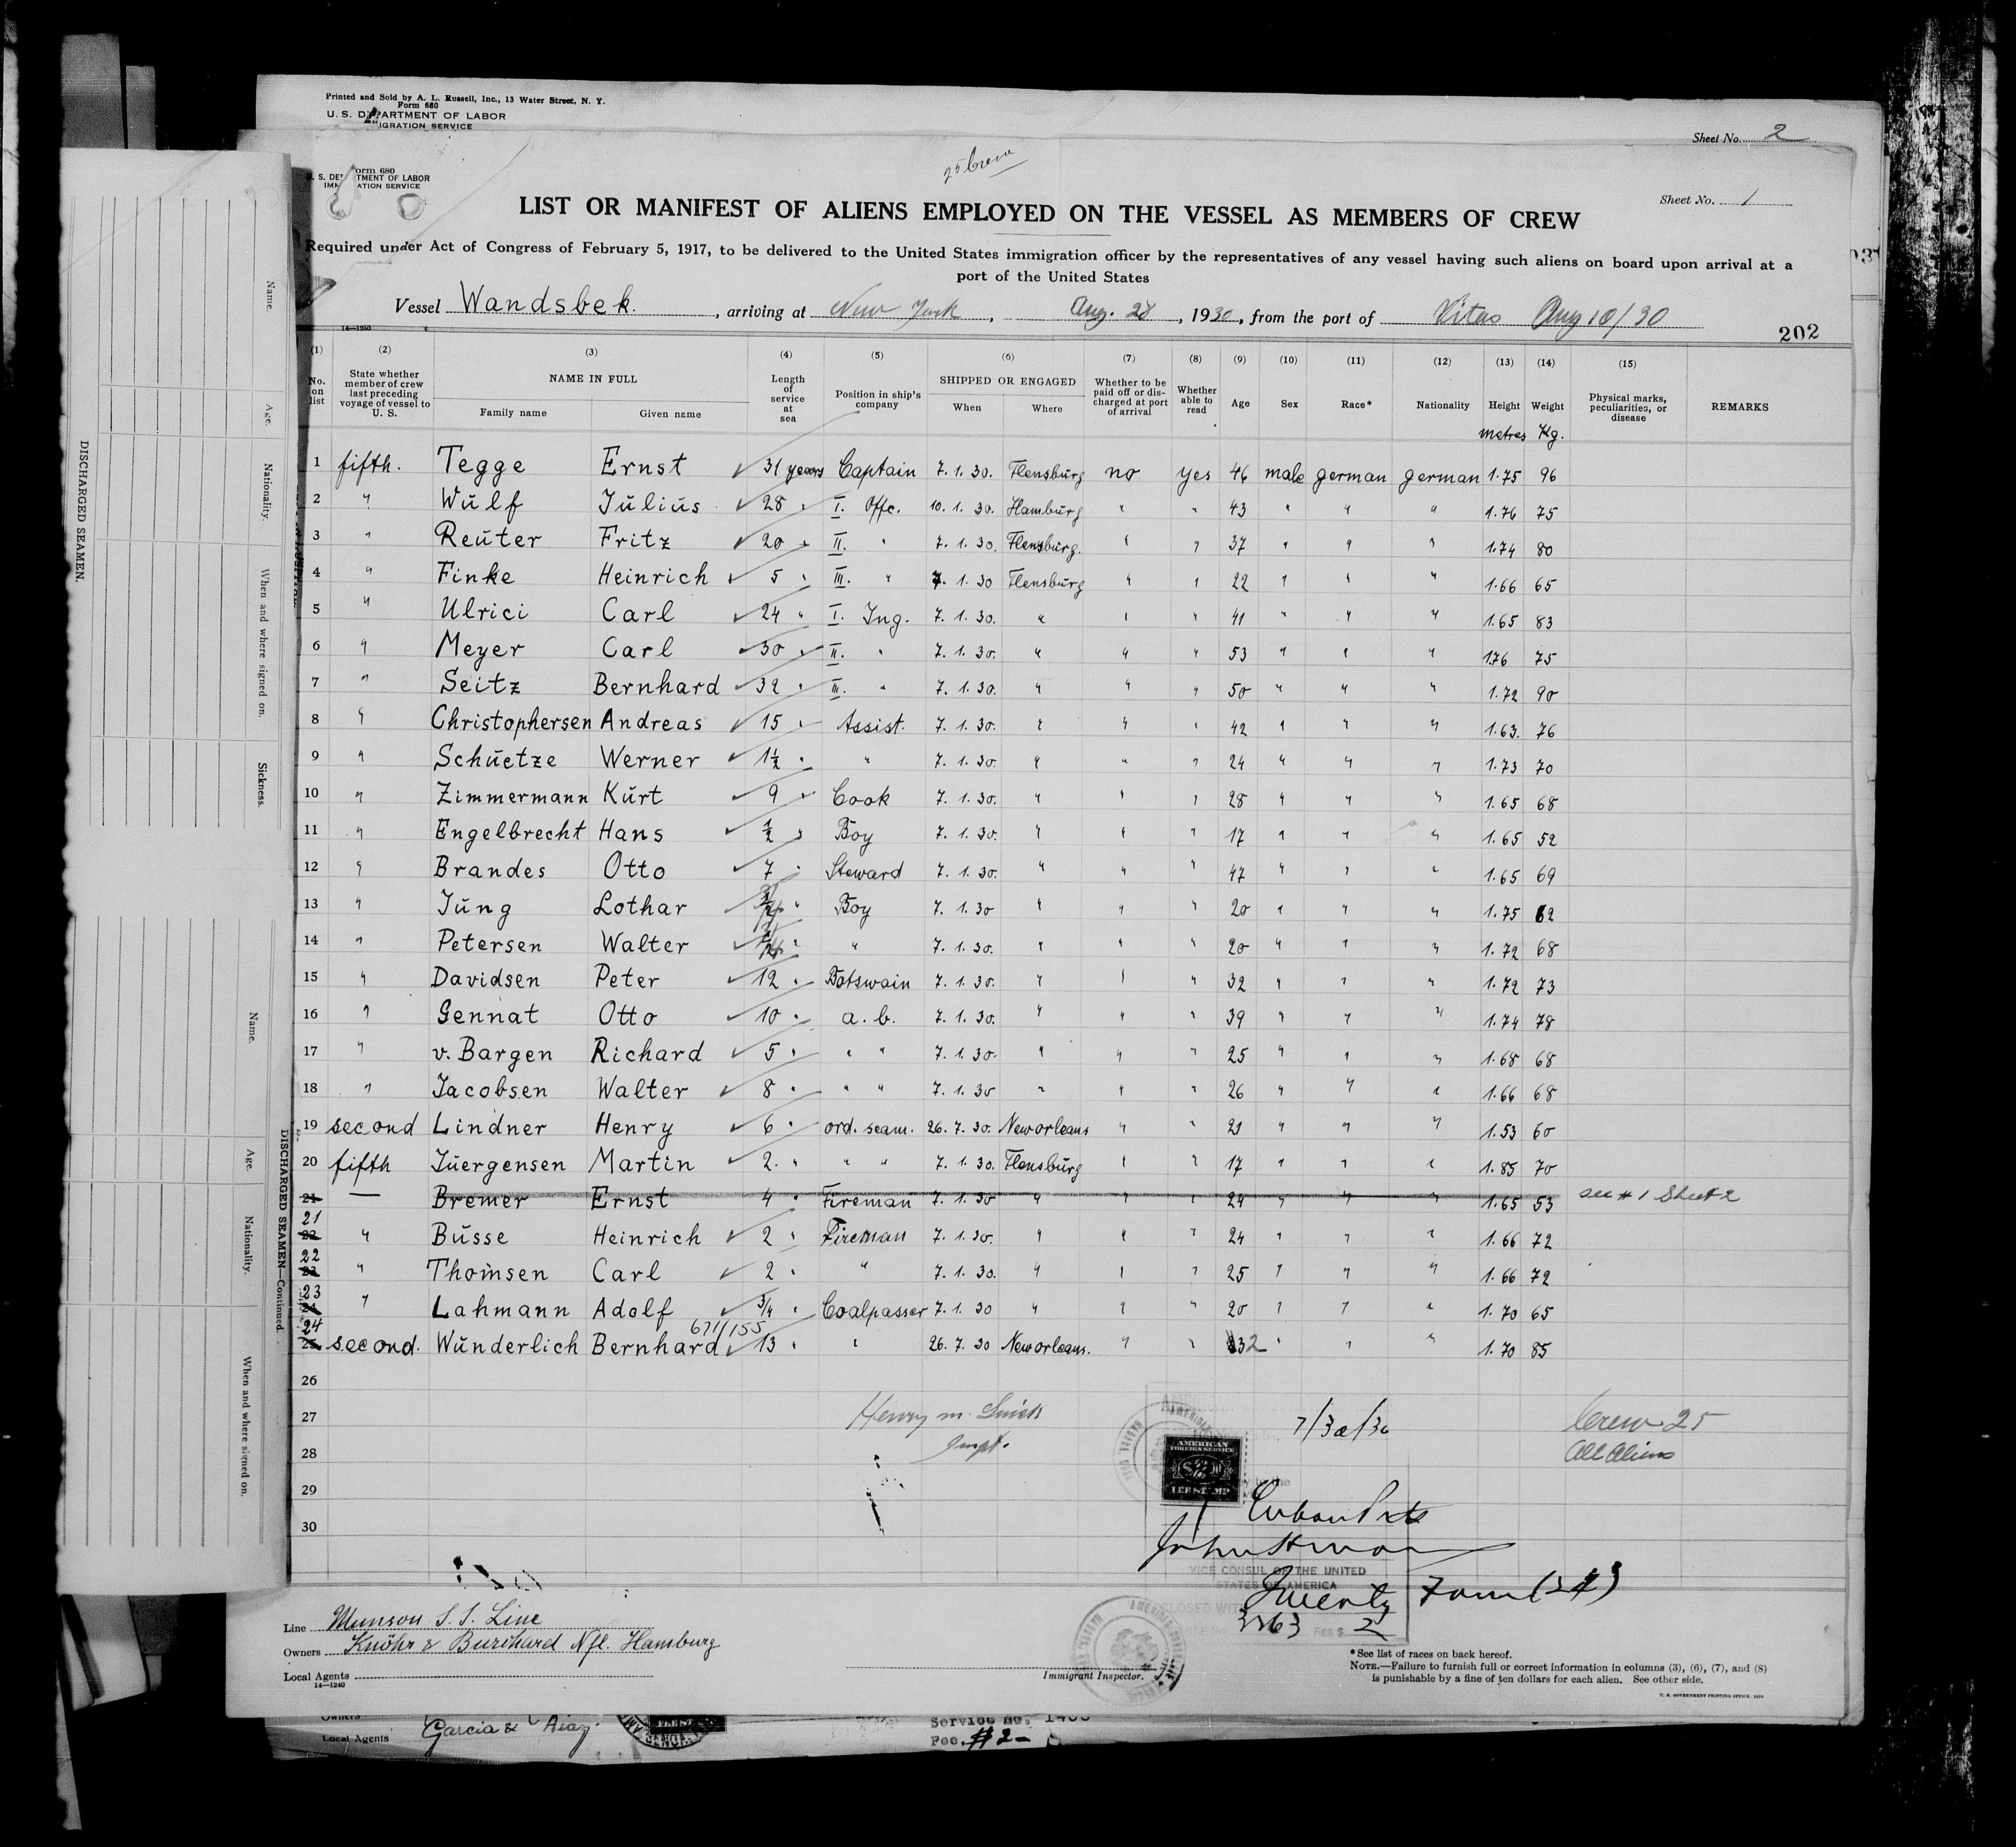 Printed and Sold by A. L. Russell, Inc., 13 Water Street, N. Y.
Form 680
U. S. DEPARTMENT OF LABOR
IGRATION SERVICE
Sheet No. 2
Form 680
U. S. DE TMENT OF LABOR
IMM ATION SERVICE
25 Crew
Sheet No. 1
LIST OR MANIFEST OF ALIENS EMPLOYED ON THE VESSEL AS MEMBERS OF CREW
Required under Act of Congress of February 5, 1917, to be delivered to the United States immigration officer by the representatives of any vessel having such aliens on board upon arrival at a
port of the United States
Vessel Wandsbek. , arriving at New York , Aug. 28 , 1930, from the port of Vitas Aug 10/30
14-1240
202
(1) (2) (3) (4) (5) (6) (7) (8) (9) (10) (11) (12) (13) (14) (15)
No. on list State whether member of crew last preceding voyage of vessel to U. S. NAME IN FULL Family name Given name Length of service at sea Position in ship's company SHIPPED OR ENGAGED When Where Whether to be paid off or discharged at port of arrival Whether able to read Age Sex Race* Nationality Height Weight Physical marks, peculiarities, or disease REMARKS
metres Kg.
1 fifth. Tegge Ernst ✓ 31 years Captain 7. 1. 30. Flensburg no yes 46 male german german 1.75 96
2 " Wulf Julius ✓ 28 " I. Offc. 10. 1. 30. Hamburg " " 43 " " " 1.76 75
3 " Reuter Fritz ✓ 20 " II. " 7. 1. 30. Flensburg. " " 37 " " " 1.74 80
4 " Finke Heinrich ✓ 5 " III. " 7. 1. 30 Flensburg " " 22 " " " 1.66 65
5 " Ulrici Carl ✓ 24 " I. Ing. 7. 1. 30. " " " 41 " " " 1.65 83
6 " Meyer Carl ✓ 30 " II. " 7. 1. 30. " " " 53 " " " 1.76 75
7 " Seitz Bernhard ✓ 32 " III. " 7. 1. 30. " " " 50 " " " 1.72 90
8 " Christophersen Andreas ✓ 15 " Assist. 7. 1. 30. " " " 42 " " " 1.63. 76
9 " Schuetze Werner ✓ 1½ " " 7. 1. 30. " " " 24 " " " 1.73 70
10 " Zimmermann Kurt ✓ 9 " Cook 7. 1. 30. " " " 28 " " " 1.65 68
11 " Engelbrecht Hans ✓ ½ " Boy 7. 1. 30. " " " 17 " " " 1.65 52
12 " Brandes Otto ✓ 7 " Steward 7. 1. 30. " " " 47 " " " 1.65 69
13 " Jung Lothar ✓ " Boy 7. 1. 30 " " " 20 " " " 1.75 62
14 " Petersen Walter ✓ " " 7. 1. 30. " " " 20 " " " 1.72 68
15 " Davidsen Peter ✓ 12 " Botswain 7. 1. 30. " " " 32 " " " 1.72 73
16 " Gennat Otto ✓ 10 " a. b. 7. 1. 30. " " " 39 " " " 1.74 78
17 " v. Bargen Richard ✓ 5 " " " 7. 1. 30. " " " 25 " " " 1.68 68
18 " Jacobsen Walter ✓ 8 " " " 7. 1. 30 " " " 26 " " " 1.66 68
19 second Lindner Henry ✓ 6 " ord. seam. 26. 7. 30. New orleans " " 21 " " " 1.53 60
20 fifth Juergensen Martin ✓ 2. " " " 7. 1. 30. Flensburg " " 17 " " " 1.85 70
21 — Bremer Ernst 4 " Fireman 7. 1. 30 " " " 24 " " " 1.65 53 see # 1 Sheet 2
21 22 " Busse Heinrich ✓ 2 " Fireman 7. 1. 30. " " " 24 " " " 1.66 72
22 23 " Thomsen Carl ✓ 2 " " 7. 1. 30. " " " 25 " " " 1.66 72
23 24 " Lahmann Adolf ✓ ¾ " Coalpasser 7. 1. 30 " " " 20 " " " 1.70 65
671/155
24 25 second. Wunderlich Bernhard ✓ 13 " " 26. 7. 30 New orleans. " " 32 " " " 1.70 85
26
27 Henry m. 7/30/30 Crew 25
28 Inspt. All Aliens
29
30
AMERICAN
FOREIGN SERVICE
FEE STAMP
Cuban Pts
VICE CONSUL OF THE UNITED
STATES OF AMERICA
Twenty Four (24)
Fee $ 2
Line Munson S. S. Line
Owners Knöhr & Burchard Nfl. Hamburg
Local Agents
14—1240
Immigrant Inspector.
*See list of races on back hereof.
NOTE.—Failure to furnish full or correct information in columns (3), (6), (7), and (8)
is punishable by a fine of ten dollars for each alien. See other side.
U. S. GOVERNMENT PRINTING OFFICE
Owners
Local Agents Garcia &
Service No.
Fee. #2-
DISCHARGED SEAMEN.
Name.
Age.
Nationality.
When and where signed on.
Sickness.
DISCHARGED SEAMEN—Continued.
Name.
Age.
Nationality.
When and where signed on.